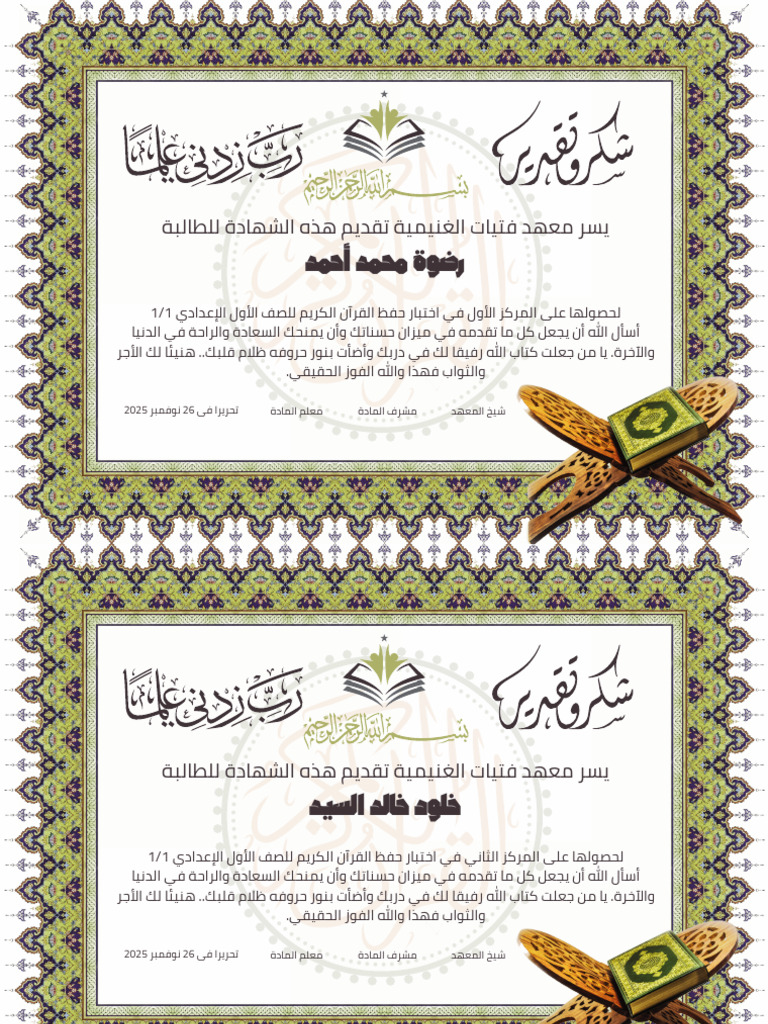 شكر وتقدير
رَبِّ زِدْنِي عِلْمًا
بسم الله الرحمن الرحيم
يسر معهد فتيات الغنيمية تقديم هذه الشهادة للطالبة
رضوة محمد أحمد
لحصولها على المركز الأول في اختبار حفظ القرآن الكريم للصف الأول الإعدادي 1/1
أسأل الله أن يجعل كل ما تقدمه في ميزان حسناتك وأن يمنحك السعادة والراحة في الدنيا
والآخرة. يا من جعلت كتاب الله رفيقا لك في دربك وأضأت بنور حروفه ظلام قلبك.. هنيئا لك الأجر
والثواب فهذا والله الفوز الحقيقي.
شيخ المعهد مشرف المادة معلم المادة تحريرا فى 26 نوفمبر 2025
شكر وتقدير
رَبِّ زِدْنِي عِلْمًا
بسم الله الرحمن الرحيم
يسر معهد فتيات الغنيمية تقديم هذه الشهادة للطالبة
خلود خالد السيد
لحصولها على المركز الثاني في اختبار حفظ القرآن الكريم للصف الأول الإعدادي 1/1
أسأل الله أن يجعل كل ما تقدمه في ميزان حسناتك وأن يمنحك السعادة والراحة في الدنيا
والآخرة. يا من جعلت كتاب الله رفيقا لك في دربك وأضأت بنور حروفه ظلام قلبك.. هنيئا لك الأجر
والثواب فهذا والله الفوز الحقيقي.
شيخ المعهد مشرف المادة معلم المادة تحريرا فى 26 نوفمبر 2025